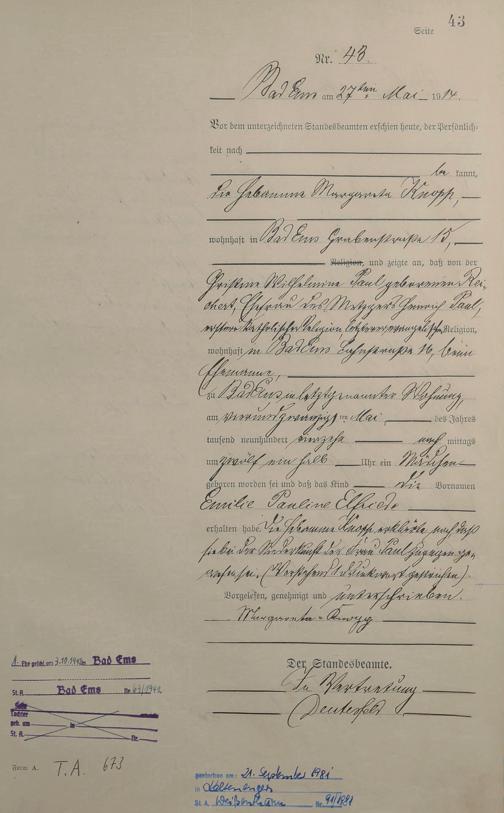 Seite 43
Nr. 43.
Bad Ems am 27ten Mai 1914.
Vor dem unterzeichneten Standesbeamten erschien heute, der Persönlich-
keit nach
be kannt,
die Hebamme Margareta Knopp,
wohnhaft in Bad Ems Grabenstraße 15,
Religion, und zeigte an, daß von der
Wilhelmine Paul geborenen Rei-
chert, Ehefrau des Metzgers Heinrich Paul,
erstere katholischer Religion letzterer evangelischer Religion,
wohnhaft in Bad Ems 16, beim
Ehemanne,
zu Bad Ems in letztgenannter Wohnung,
am vierundzwanzigsten Mai des Jahres
tausend neunhundert vierzehn nach mittags
um zwölf ein halb Uhr ein Mädchen
geboren worden sei und daß das Kind die Vornamen
Emilie Pauline Elfriede
erhalten habe. Die Hebamme Knopp erklärte noch daß
sie bei der Niederkunft der Frau Paul zugegen ge-
wesen sei. (Vorstehend 1 Druckwort gestrichen).
Vorgelesen, genehmigt und unterschrieben.
Margareta Knopp
Der Standesbeamte.
In Vertretung
1. Ehe geschl. am 3.10.1942 in Bad Ems
St. A. Bad Ems Nr. 1942
Tochter
geb. am in
St. A. Nr.
Form A. T.A. 673
gestorben am: 21. September 1981
in
St. A. Nr. 91/1981